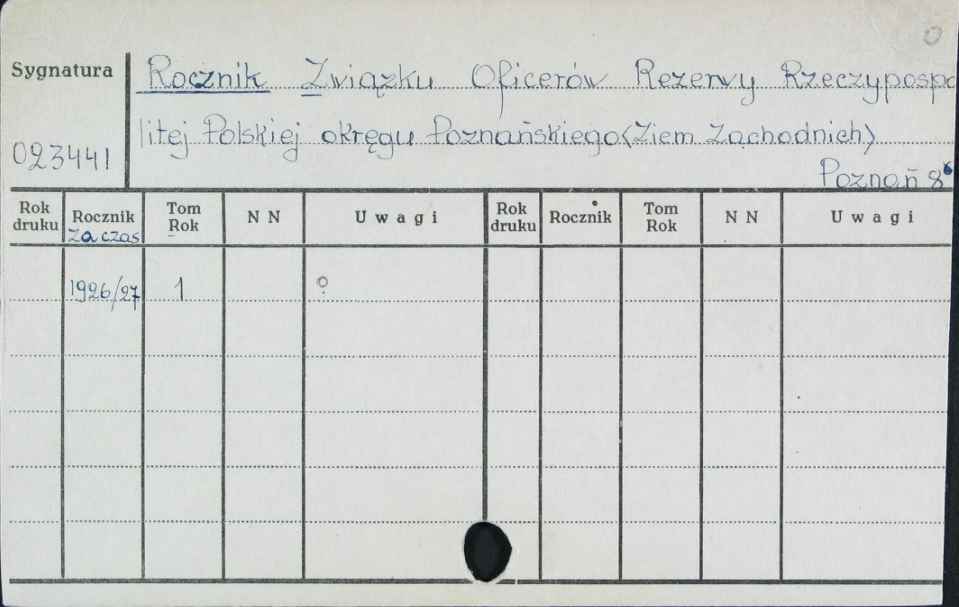 Sygnatura
Rocznik Związku Oficerów Rezerwy Rzeczypospo
litej Polskiej okręgu Poznańskiego (Ziem Zachodnich)
023441
Poznań 8°
Rok druku Rocznik za czas Tom Rok NN Uwagi Rok druku Rocznik Tom Rok NN Uwagi
1926/27 1